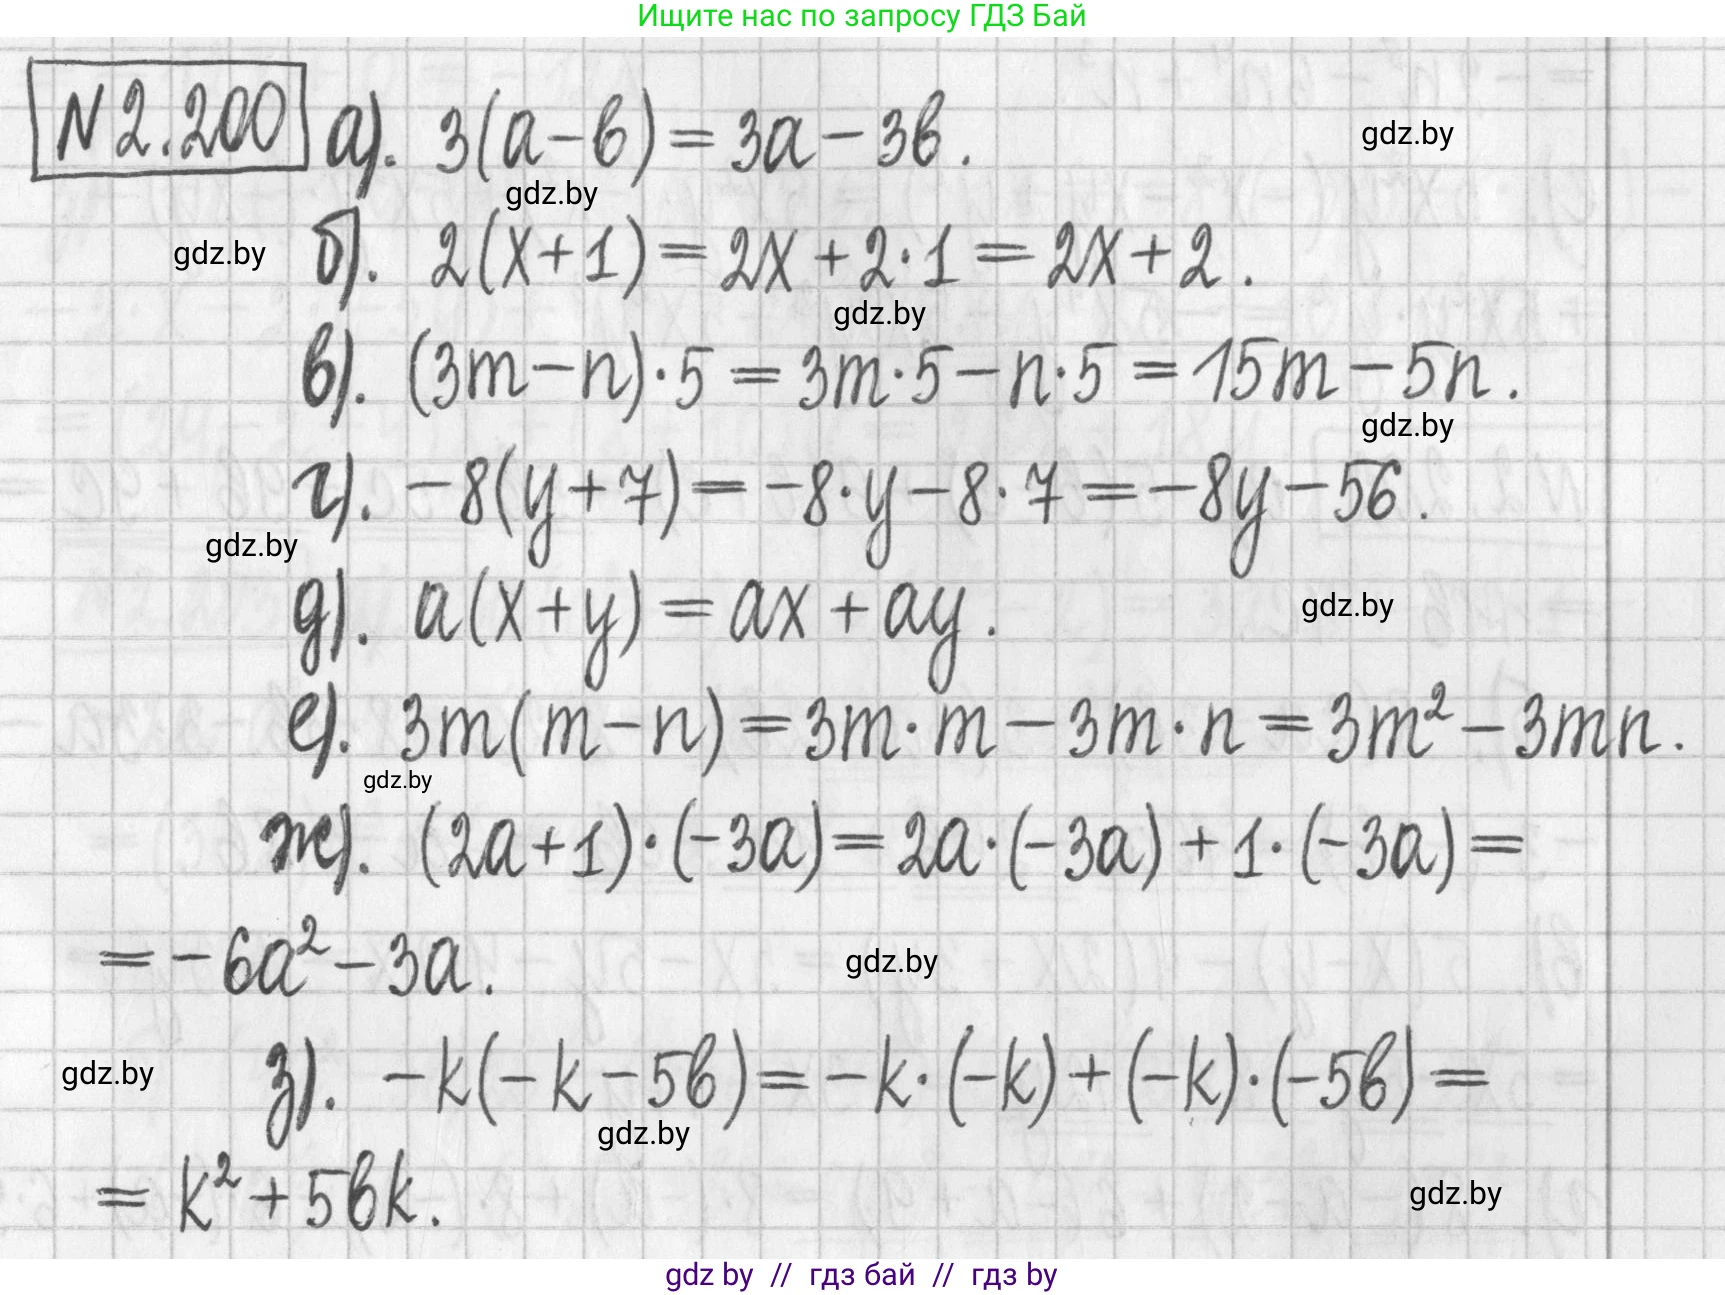 Ищите нас по запросу ГДЗ Бай
N 2.200 а). 3(a-b) = 3a - 3b.
gdz.by
gdz.by
gdz.by б). 2(x+1) = 2x + 2·1 = 2x + 2.
gdz.by
в). (3m-n)·5 = 3m·5 - n·5 = 15m - 5n.
gdz.by
г). -8(y+7) = -8·y - 8·7 = -8y - 56.
gdz.by
д). a(x+y) = ax + ay.
gdz.by
е). 3m(m-n) = 3m·m - 3m·n = 3m² - 3mn.
gdz.by
ж). (2a+1)·(-3a) = 2a·(-3a) + 1·(-3a) =
= -6a² - 3a.
gdz.by
gdz.by з). -k(-k-5b) = -k·(-k) + (-k)·(-5b) =
gdz.by
= k² + 5bk.
gdz.by
gdz by // гдз бай // гдз by